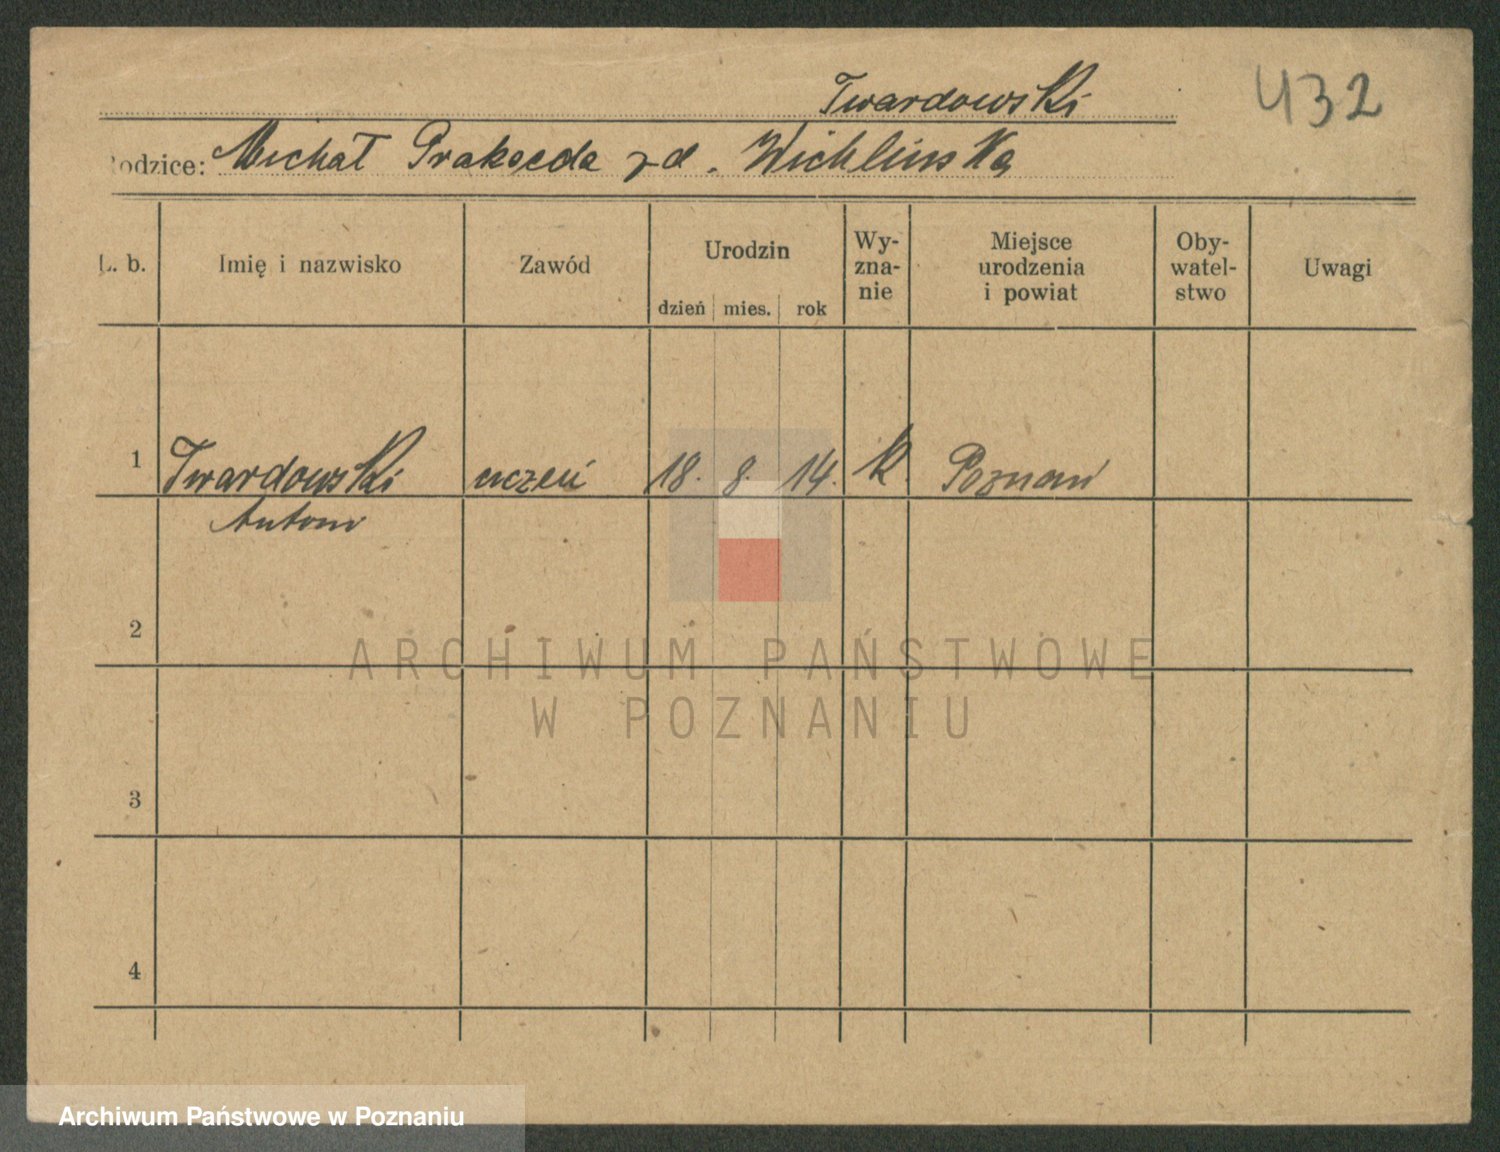 Twardowski
432
Rodzice: Michał Prakseda zd. Wichlińska
L. b.
Imię i nazwisko
Zawód
Urodzin
dzień
mies.
rok
Wy-
zna-
nie
Miejsce
urodzenia
i powiat
Oby-
watel-
stwo
Uwagi
1
Twardowski
Antoni
uczeń
18.
8.
14.
k.
Poznań
2
3
4
ARCHIWUM PAŃSTWOWE
W POZNANIU
Archiwum Państwowe w Poznaniu